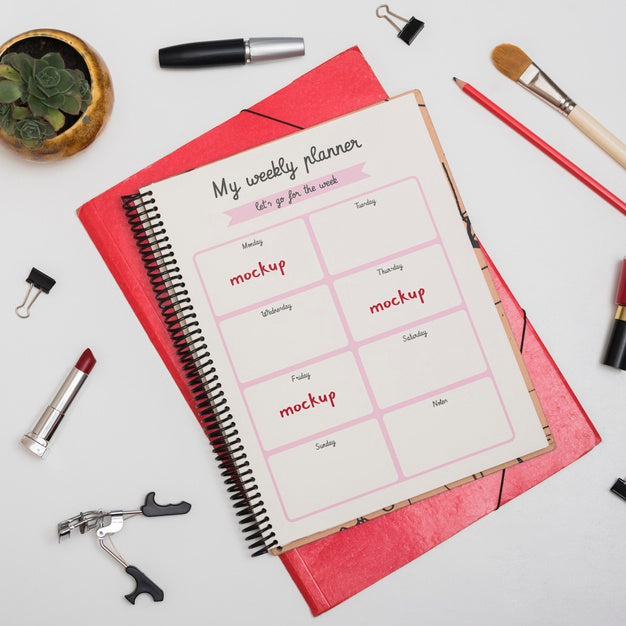 My weekly planner
let's go for the week
Monday
mockup
Tuesday
Wednesday
Thursday
mockup
Friday
mockup
Saturday
Sunday
Notes